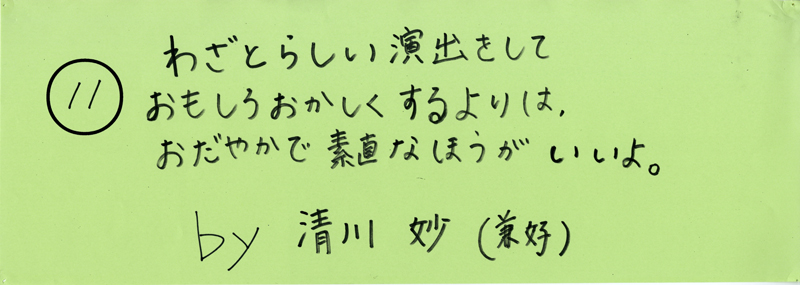 11
わざとらしい演出をして
おもしろおかしくするよりは,
おだやかで素直なほうがいいよ。
by 清川 妙 (兼好)